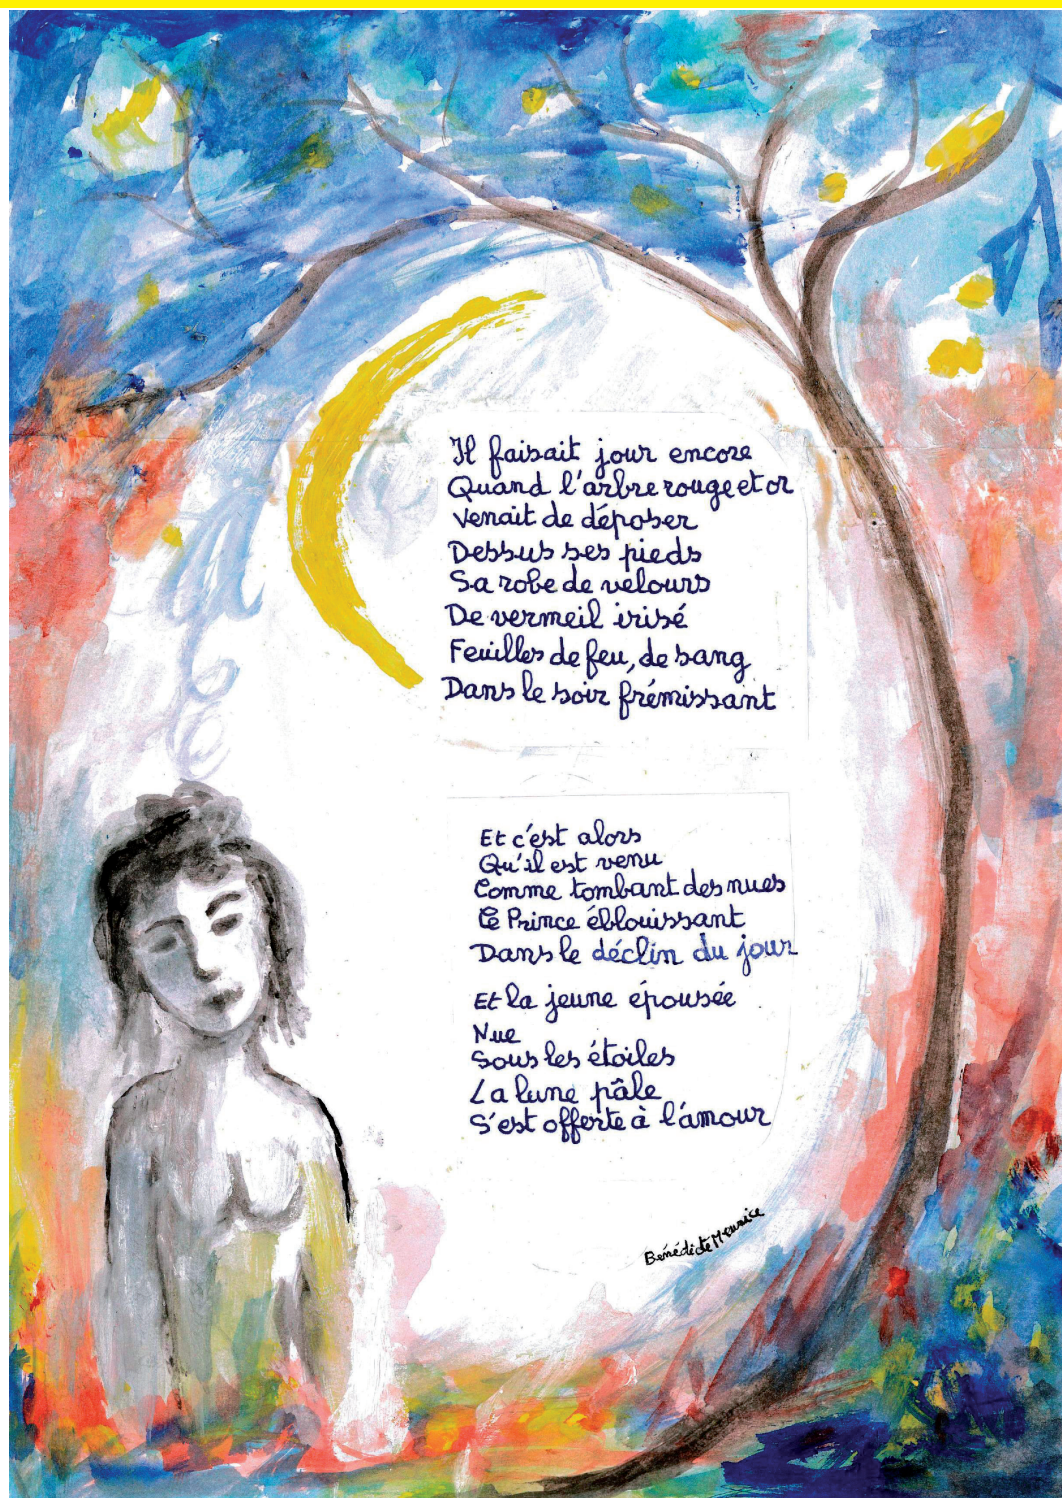 Il faisait jour encore
Quand l'arbre rouge et or
Venait de déposer
Dessus ses pieds
Sa robe de velours
De vermeil irisé
Feuilles de feu, de sang
Dans le soir frémissant
Et c'est alors
Qu'il est venu
Comme tombant des nues
Le Prince éblouissant
Dans le déclin du jour
Et la jeune épousée
Nue
Sous les étoiles
La lune pâle
S'est offerte à l'amour
Bénédicte Meurice